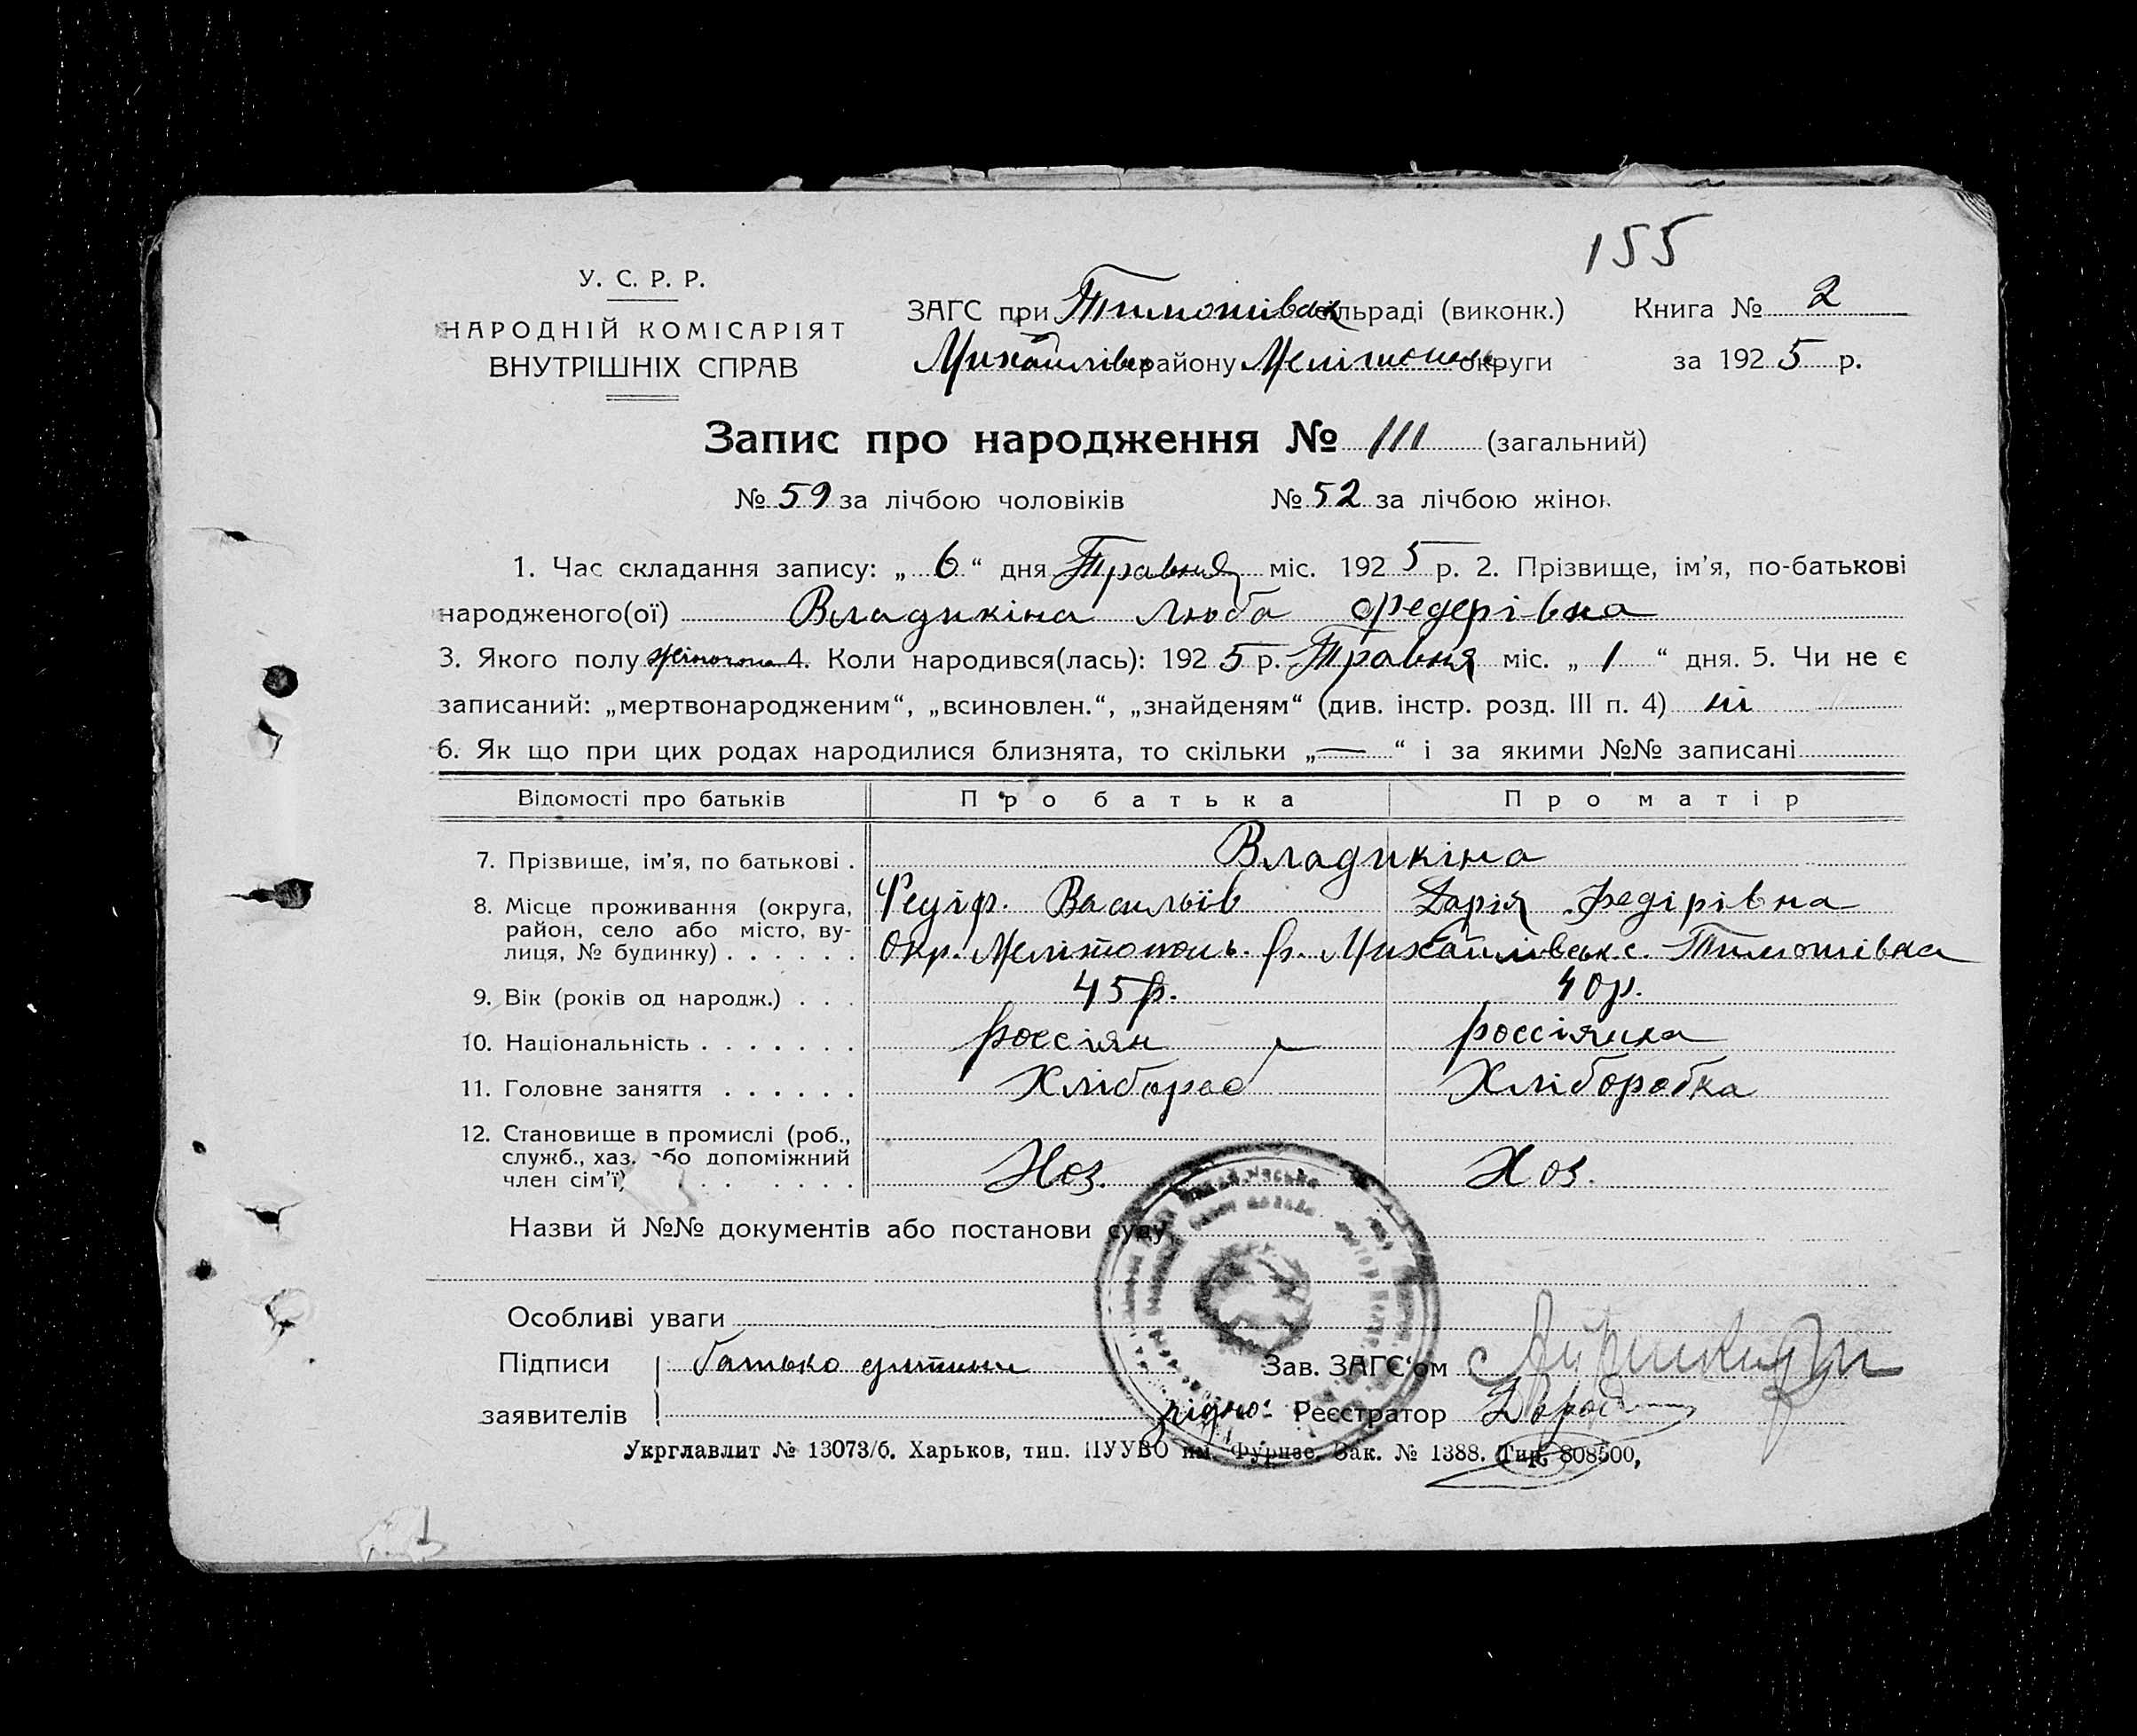 155
У. С. Р. Р.
НАРОДНІЙ КОМІСАРІЯТ
ВНУТРІШНІХ СПРАВ
ЗАГС при Тимошівськ сільраді (виконк.)
Михайлівск району Мелітопол округи
Книга № 2
за 1925 р.
Запис про народження № 111 (загальний)
№ 59 за лічбою чоловіків № 52 за лічбою жінок
1. Час складання запису: „ 6 “ дня Травня міс. 1925 р. 2. Прізвище, ім’я, по-батькові
народженого(ої) Владикіна Люба Федерівна
3. Якого полу жіночого 4. Коли народився(лась): 1925 р. Травня міс. „ 1 “ дня. 5. Чи не є
записаний: „мертвонародженим“, „всиновлен.“, „знайденям“ (див. інстр. розд. III п. 4) ні
6. Як що при цих родах народилися близнята, то скільки „ — “ і за якими №№ записані
Відомості про батьків Про батька Про матір
7. Прізвище, ім’я, по батькові . Владикіна
Федір. Васильїв Дарія Федірівна
8. Місце проживання (округа,
район, село або місто, ву-
лиця, № будинку) . . . . . . Окр. Мелітополь. р. Михайлівськ с. Тимошівка
9. Вік (років од народж.) . . . 45 р. 40 р.
10. Національність . . . . . . . россіян россіянка
11. Головне заняття . . . . . . Хлібороб Хлібороб­ка
12. Становище в промислі (роб.,
служб., хаз. або допоміжний
член сім’ї) . . . . . . Хоз. Хоз.
Назви й №№ документів або постанови суду
Особливі уваги
Підписи батько дитини Зав. ЗАГС‘ом
заявителів Реєстратор
Укрглавлит № 13073/б. Харьков, тип. ПУУВО им. Фрунзе. Зак. № 1388. Тир. 808500,